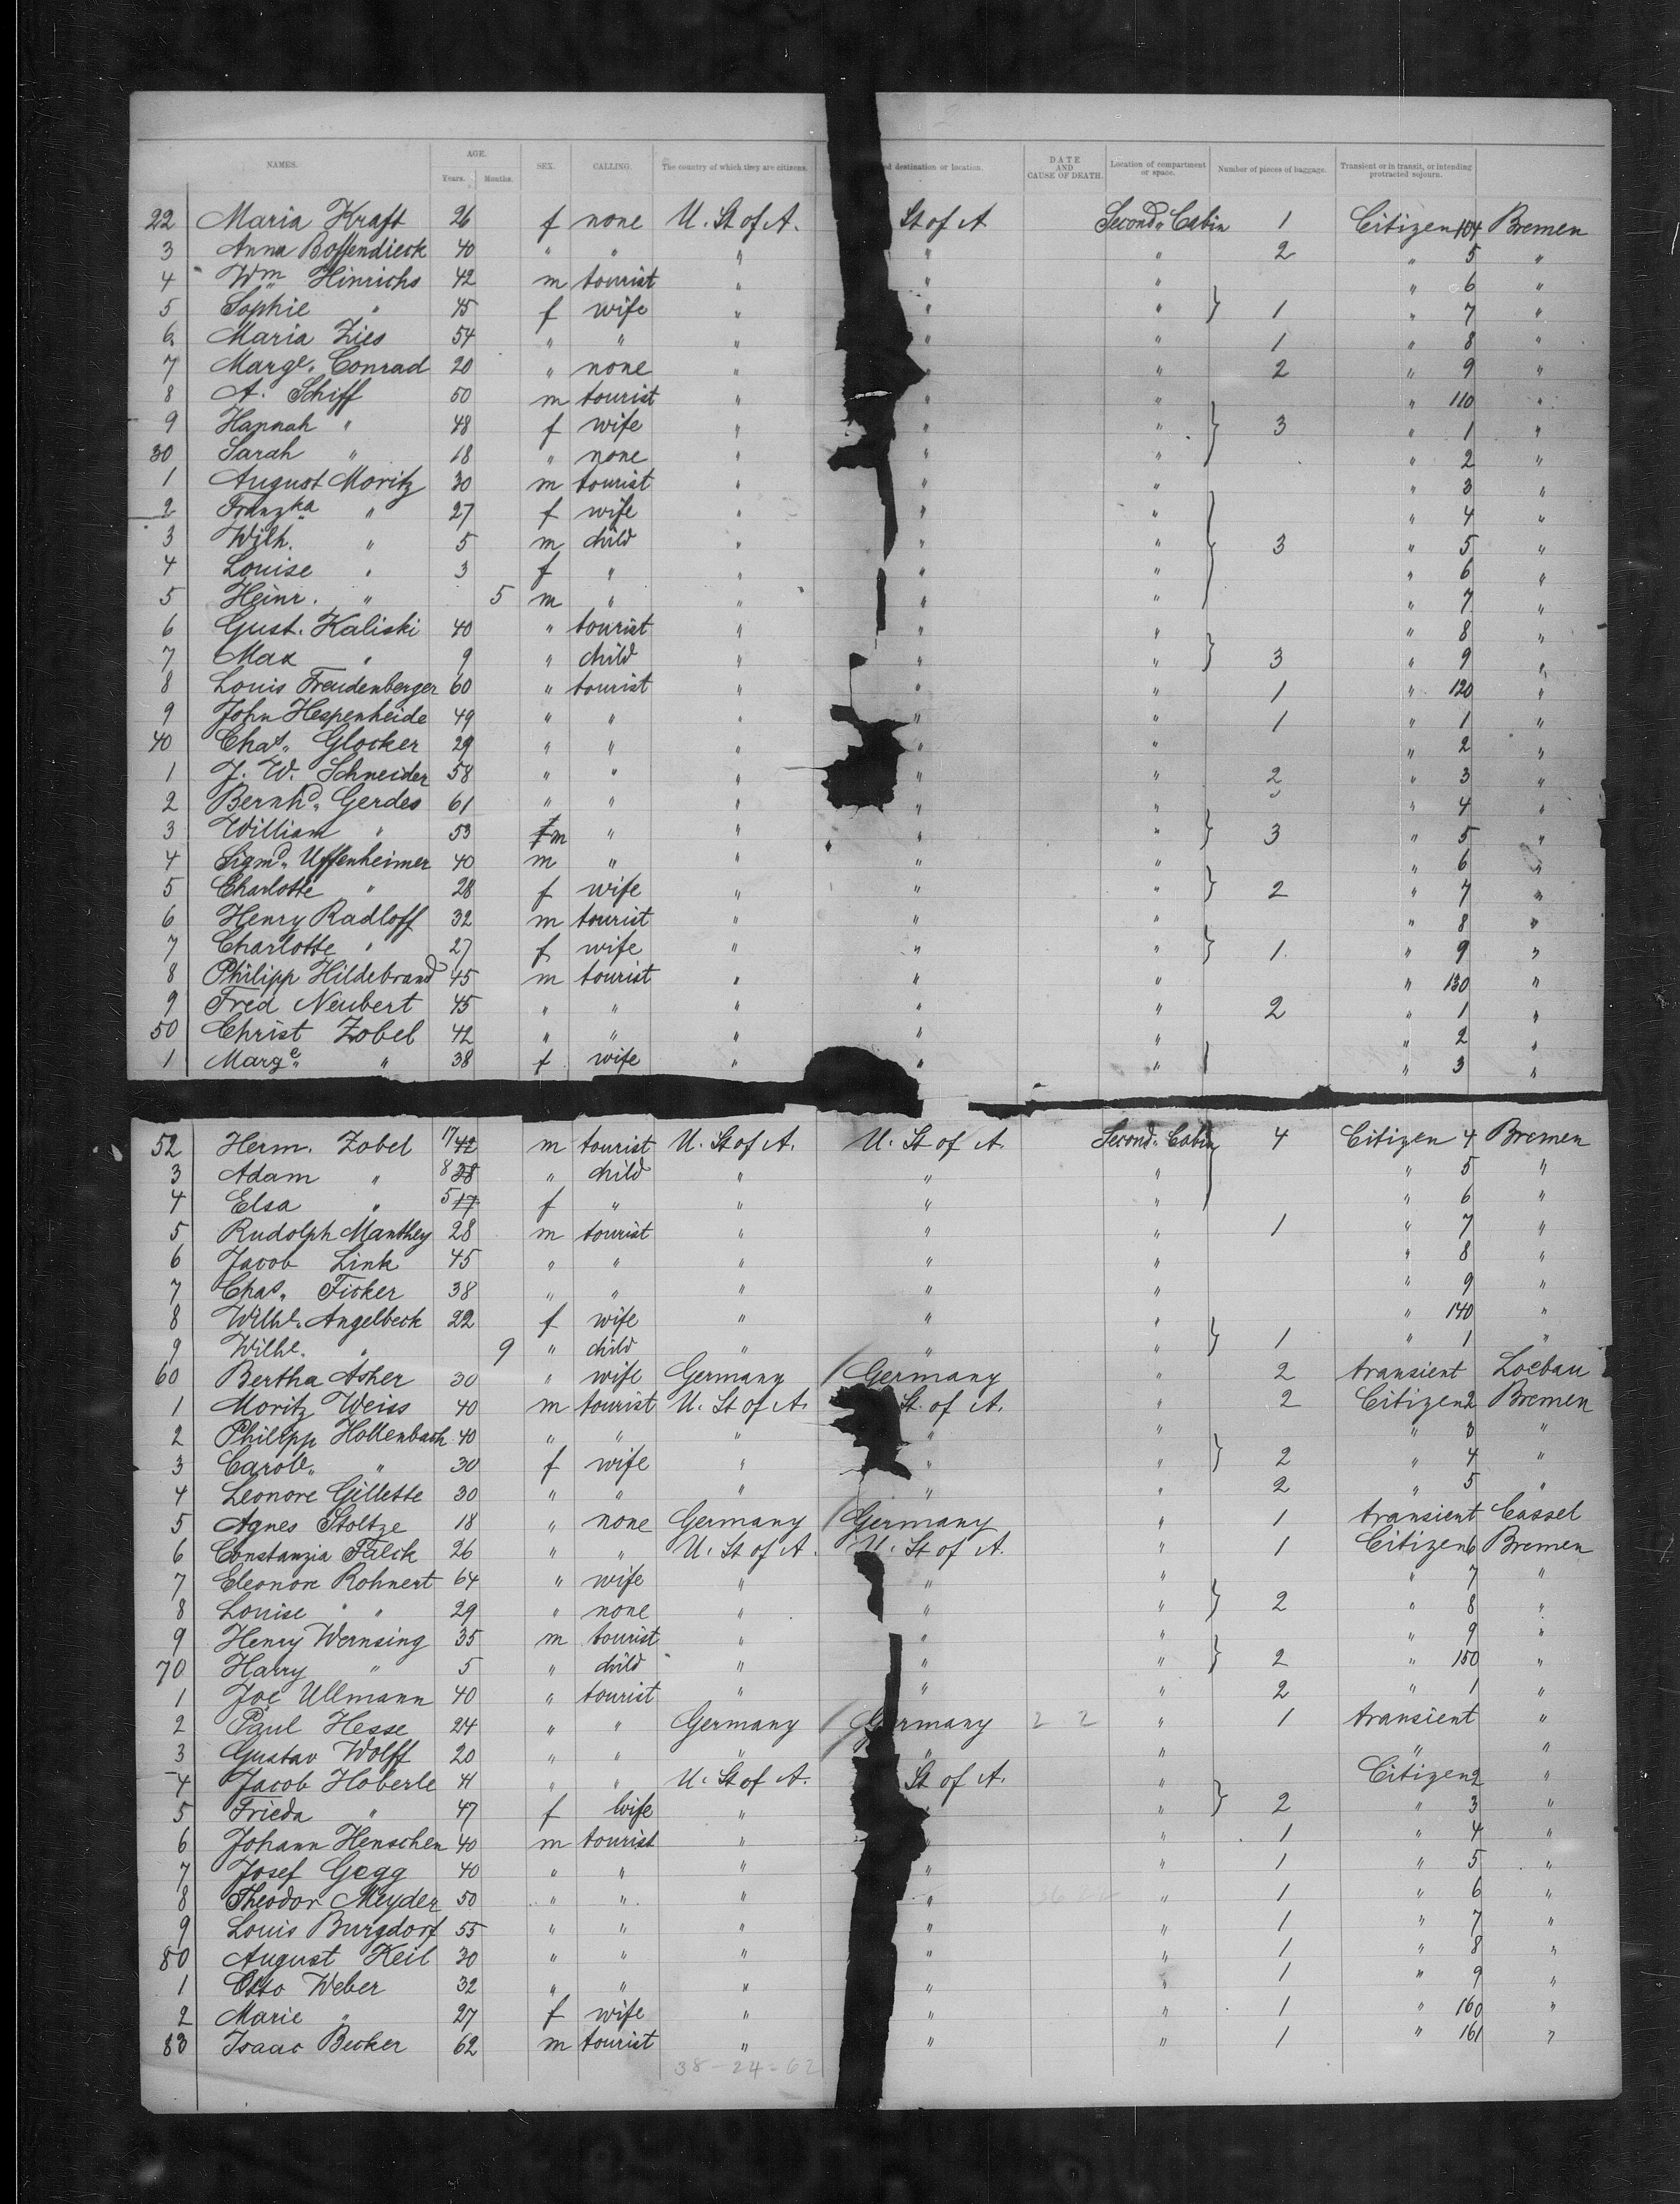 NAMES. AGE. Years. Months. SEX. CALLING. The country of which they are citizens. d destination or location. DATE AND CAUSE OF DEATH. Location of compartment or space. Number of pieces of baggage. Transient or in transit, or intending protracted sojourn.
22 Maria Kraft 26 f none U. St of A. St of A Second Cabin 1 Citizen 104 Bremen
3 Anna Boffendieck 40 " " " " " 2 " 5 "
4 Wm Hinrichs 42 m tourist " " " " 6 "
5 Sophie " 45 f wife " " " } 1 " 7 "
6 Maria Zies 54 " " " " " 1 " 8 "
7 Marge. Conrad 20 " none " " " 2 " 9 "
8 A. Schiff 50 m tourist " " " " 110 "
9 Hannah " 48 f wife " " " } 3 " 1 "
30 Sarah " 18 " none " " " " 2 "
1 August Moritz 30 m tourist " " " " 3 "
2 Franzka " 27 f wife " " " " 4 "
3 Wilh. " 5 m child " " " } 3 " 5 "
4 Louise " 3 f " " " " " 6 "
5 Heinr. " 5 m " " " " " 7 "
6 Gust. Kaliski 40 " tourist " " " " 8 "
7 Max " 9 " child " " " } 3 " 9 "
8 Louis Freudenberger 60 " tourist " " " 1 " 120 "
9 John Hespenheide 49 " " " " " 1 " 1 "
40 Chas. Glocker 29 " " " " " " 2 "
1 J. W. Schneider 58 " " " " " 2 " 3 "
2 Bernhd. Gerdes 61 " " " " " " 4 "
3 William " 53 f m " " " " } 3 " 5 "
4 Sigmd. Uffenheimer 40 m " " " " " 6 "
5 Charlotte " 28 f wife " " " } 2 " 7 "
6 Henry Radloff 32 m tourist " " " " 8 "
7 Charlotte " 27 f wife " " " } 1. " 9 "
8 Philipp Hildebrand 45 m tourist " " " " 130 "
9 Fred Neubert 45 " " " " " 2 " 1 "
50 Christ Zobel 42 " " " " " " 2 "
1 Marge. " 38 f wife " " " " 3 "
52 Herm. Zobel 17 42 m tourist U. St of A. U. St of A. Second Cabin 4 Citizen 4 Bremen
3 Adam " 8 38 " child " " " " 5 "
4 Elsa " 5 17 f " " " " " 6 "
5 Rudolph Manthey 28 m tourist " " " 1 " 7 "
6 Jacob Link 45 " " " " " " 8 "
7 Chas. Ficker 38 " " " " " " 9 "
8 Wilhe. Angelbeck 22 f wife " " " " 140 "
9 Wilhe. " 9 " child " " " } 1 " 1 "
60 Bertha Asher 30 " wife Germany Germany " 2 transient Loebau
1 Moritz Weiss 40 m tourist U. St of A. St. of A. " 2 Citizen 2 Bremen
2 Philipp Hollenbach 40 " " " " " " 3 "
3 Carole. " 30 f wife " " " } 2 " 4 "
4 Leonore Gillette 30 " " " " " 2 " 5 "
5 Agnes Stoltze 18 " none Germany Germany " 1 transient Cassel
6 Constanzia Falck 26 " " U. St of A. U. St of A. " 1 Citizen 6 Bremen
7 Eleonore Rohnert 64 " wife " " " " 7 "
8 Louise " " 29 " none " " " } 2 " 8 "
9 Henry Wernsing 35 m tourist " " " " 9 "
70 Harry " 5 " child " " " } 2 " 150 "
1 Joe Ullmann 40 " tourist " " " 2 " 1 "
2 Paul Hesse 24 " " Germany Germany 2 2 " 1 transient "
3 Gustav Wolff 20 " " " " " " "
4 Jacob Hoberle 41 " " U. St of A. St of A. " Citizen 2 "
5 Frieda " 47 f wife " " " } 2 " 3 "
6 Johann Henschen 40 m tourist " " 1 " 4 "
7 Josef Gegg 40 " " " " " 1 " 5 "
8 Theodor Meyder 50 " " " " " 1 " 6 "
9 Louis Burgdorf 55 " " " " " 1 " 7 "
80 August Keil 30 " " " " " 1 " 8 "
1 Otto Weber 32 " " " " " 1 " 9 "
2 Marie " 27 f wife " " " 1 " 160 "
83 Isaac Becker 62 m tourist " " " 1 " 161 "
38 - 24 = 62